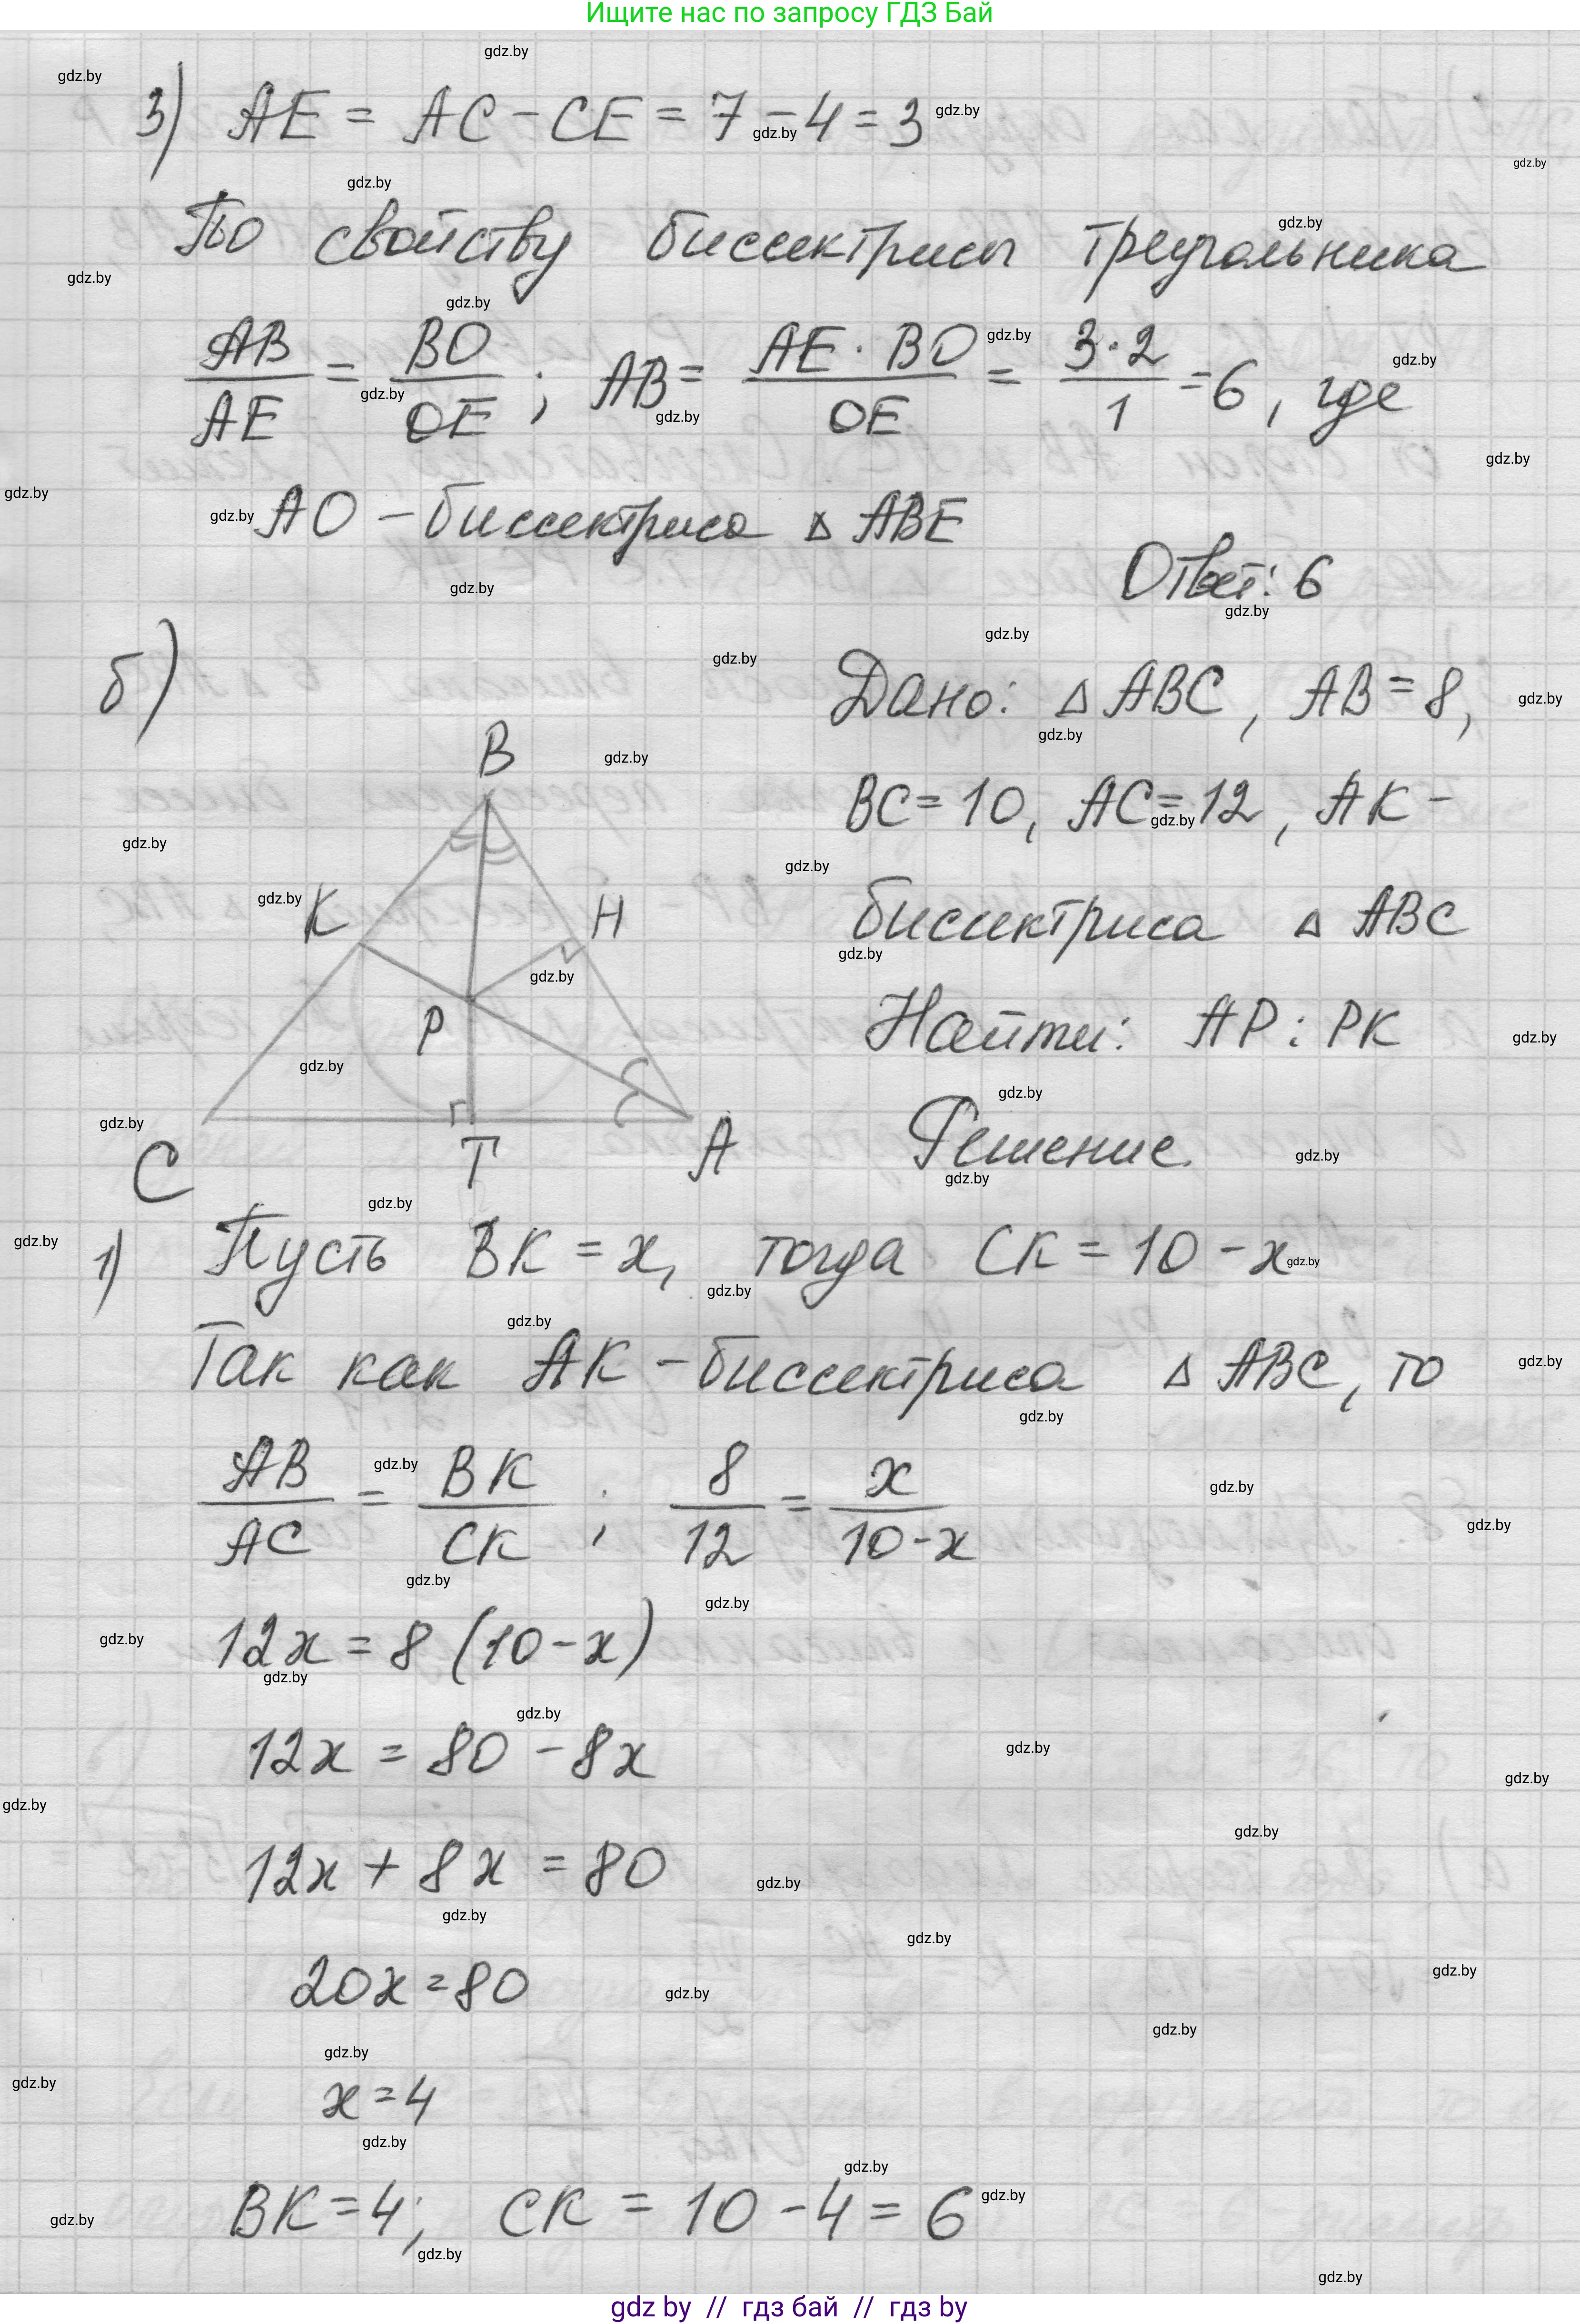 Ищите нас по запросу ГДЗ Бай
3) AE = AC - CE = 7 - 4 = 3
По свойству биссектрисы треугольника
AB/AE = BO/OE ; AB = AE · BO/OE = 3·2/1 = 6, где
AO - биссектриса △ ABE
Ответ: 6
б)
Дано: △ ABC, AB = 8,
BC = 10, AC = 12, AK -
биссектриса △ ABC
Найти: AP : PK
B
K
H
P
C
T
A
Решение.
1) Пусть BK = x, тогда CK = 10 - x
Так как AK - биссектриса △ ABC, то
AB/AC = BK/CK ; 8/12 = x/10-x
12x = 8 (10 - x)
12x = 80 - 8x
12x + 8x = 80
20x = 80
x = 4
BK = 4; CK = 10 - 4 = 6
gdz by // гдз бай // гдз by